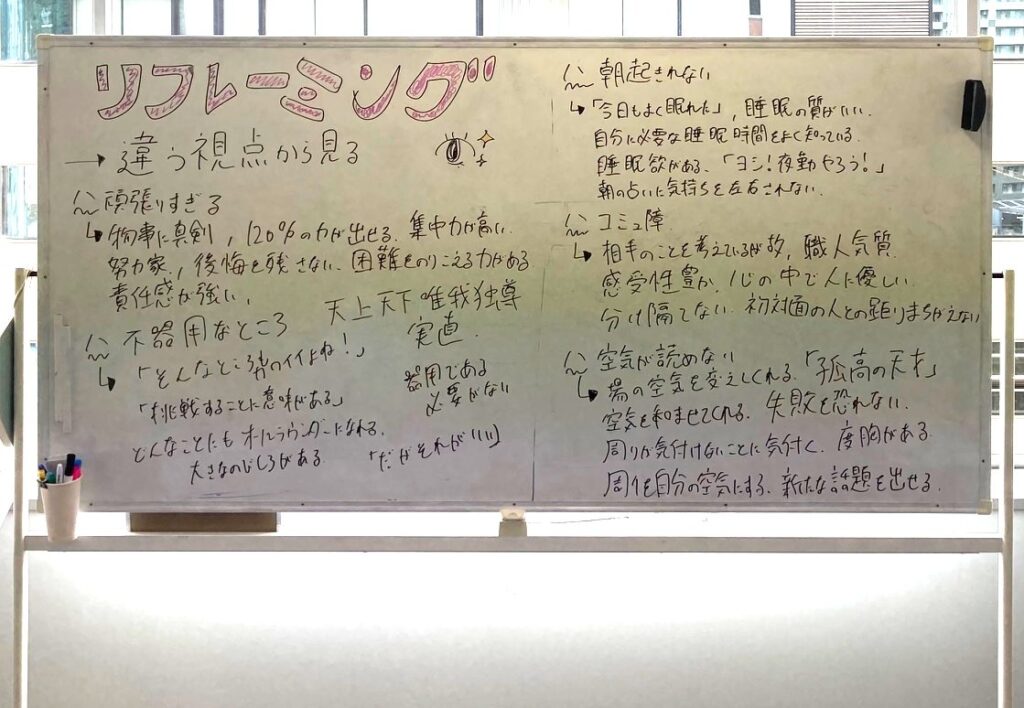 リフレーミング
→違う視点から見る
頑張りすぎる
↳物事に真剣, 120%の力が出せる. 集中力が高い.
努力家, 後悔を残さない. 困難をのりこえる力がある
責任感が強い,
天上天下唯我独尊
不器用なところ
実直.
↳「そんなところがイイよね!」
器用である
必要がない
「挑戦することに意味がある」
どんなことにもオールラウンダーになれる.
大きなのびしろがある
「だがそれがいい」
朝起きれない
↳「今日もよく眠れた」, 睡眠の質がいい.
自分に必要な睡眠時間をよく知っている.
睡眠欲がある. 「ヨシ!夜勤やろう!」
朝の占いに気持ちを左右されない.
コミュ障
↳相手のことを考えているが故, 職人気質.
感受性豊か. 心の中で人に優しい.
分け隔てない. 初対面の人との距りまちがえない
空気が読めない
↳場の空気を変えてくれる. 「孤高の天才」
空気を和ませてくれる. 失敗を恐れない.
周りが気付けないことに気付く. 度胸がある.
周りを自分の空気にする. 新たな話題を出せる.